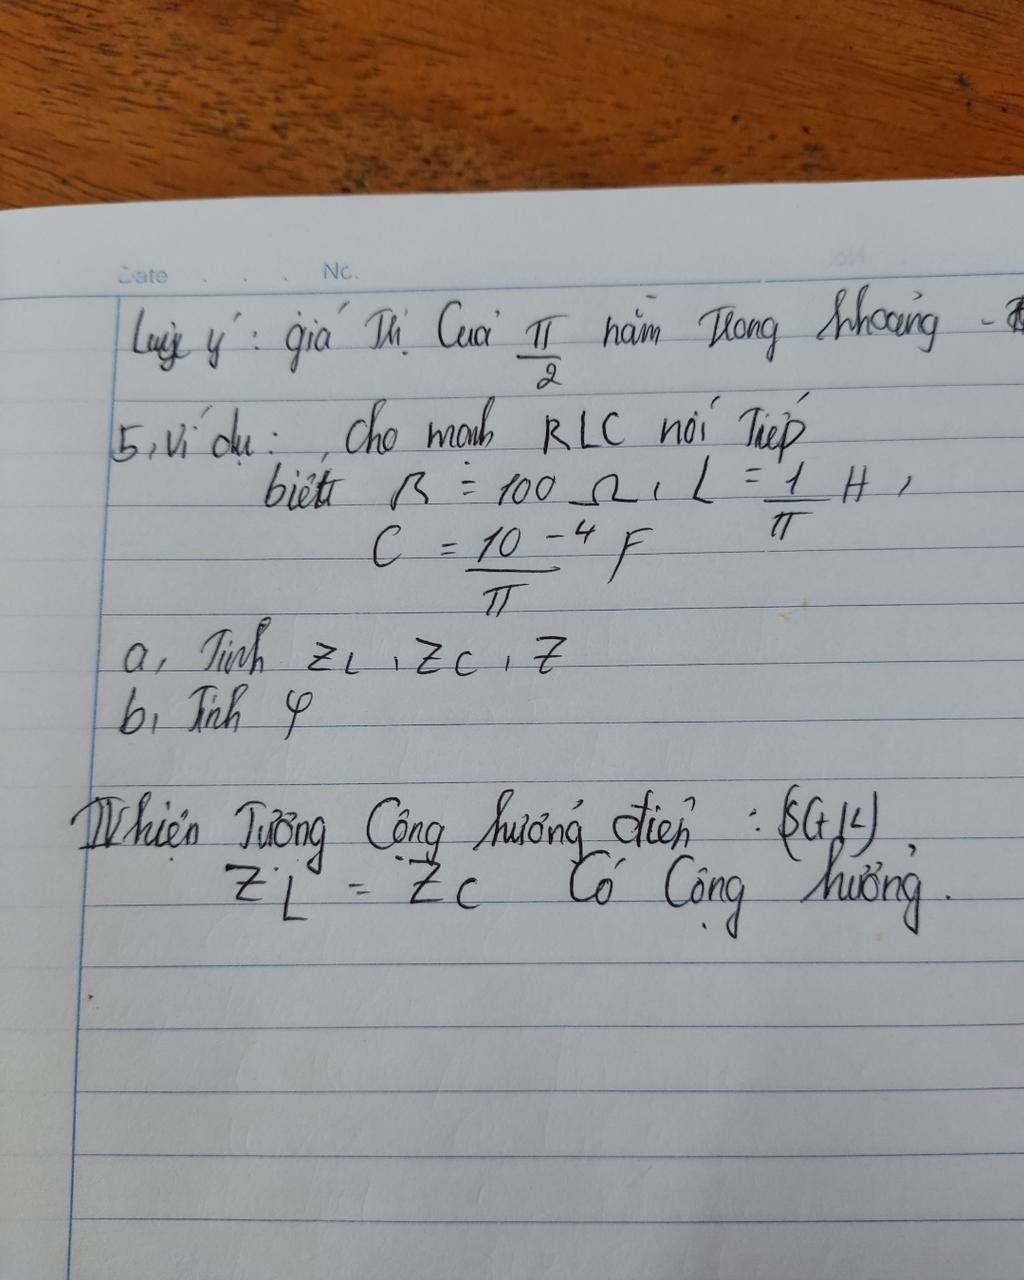 Date . . . No.
Lưu ý: giá Trị Của π/2 nằm Trong khoảng -
5, ví dụ: , Cho mạnh RLC nối Tiếp
biết R = 100 Ω, L = 1/π H,
C = 10⁻⁴/π F
a, Tính ZL, ZC, Z
b, Tính φ
IV hiện Tượng Cộng hưởng điện : (SGK)
ZL = ZC Có Cộng hưởng.